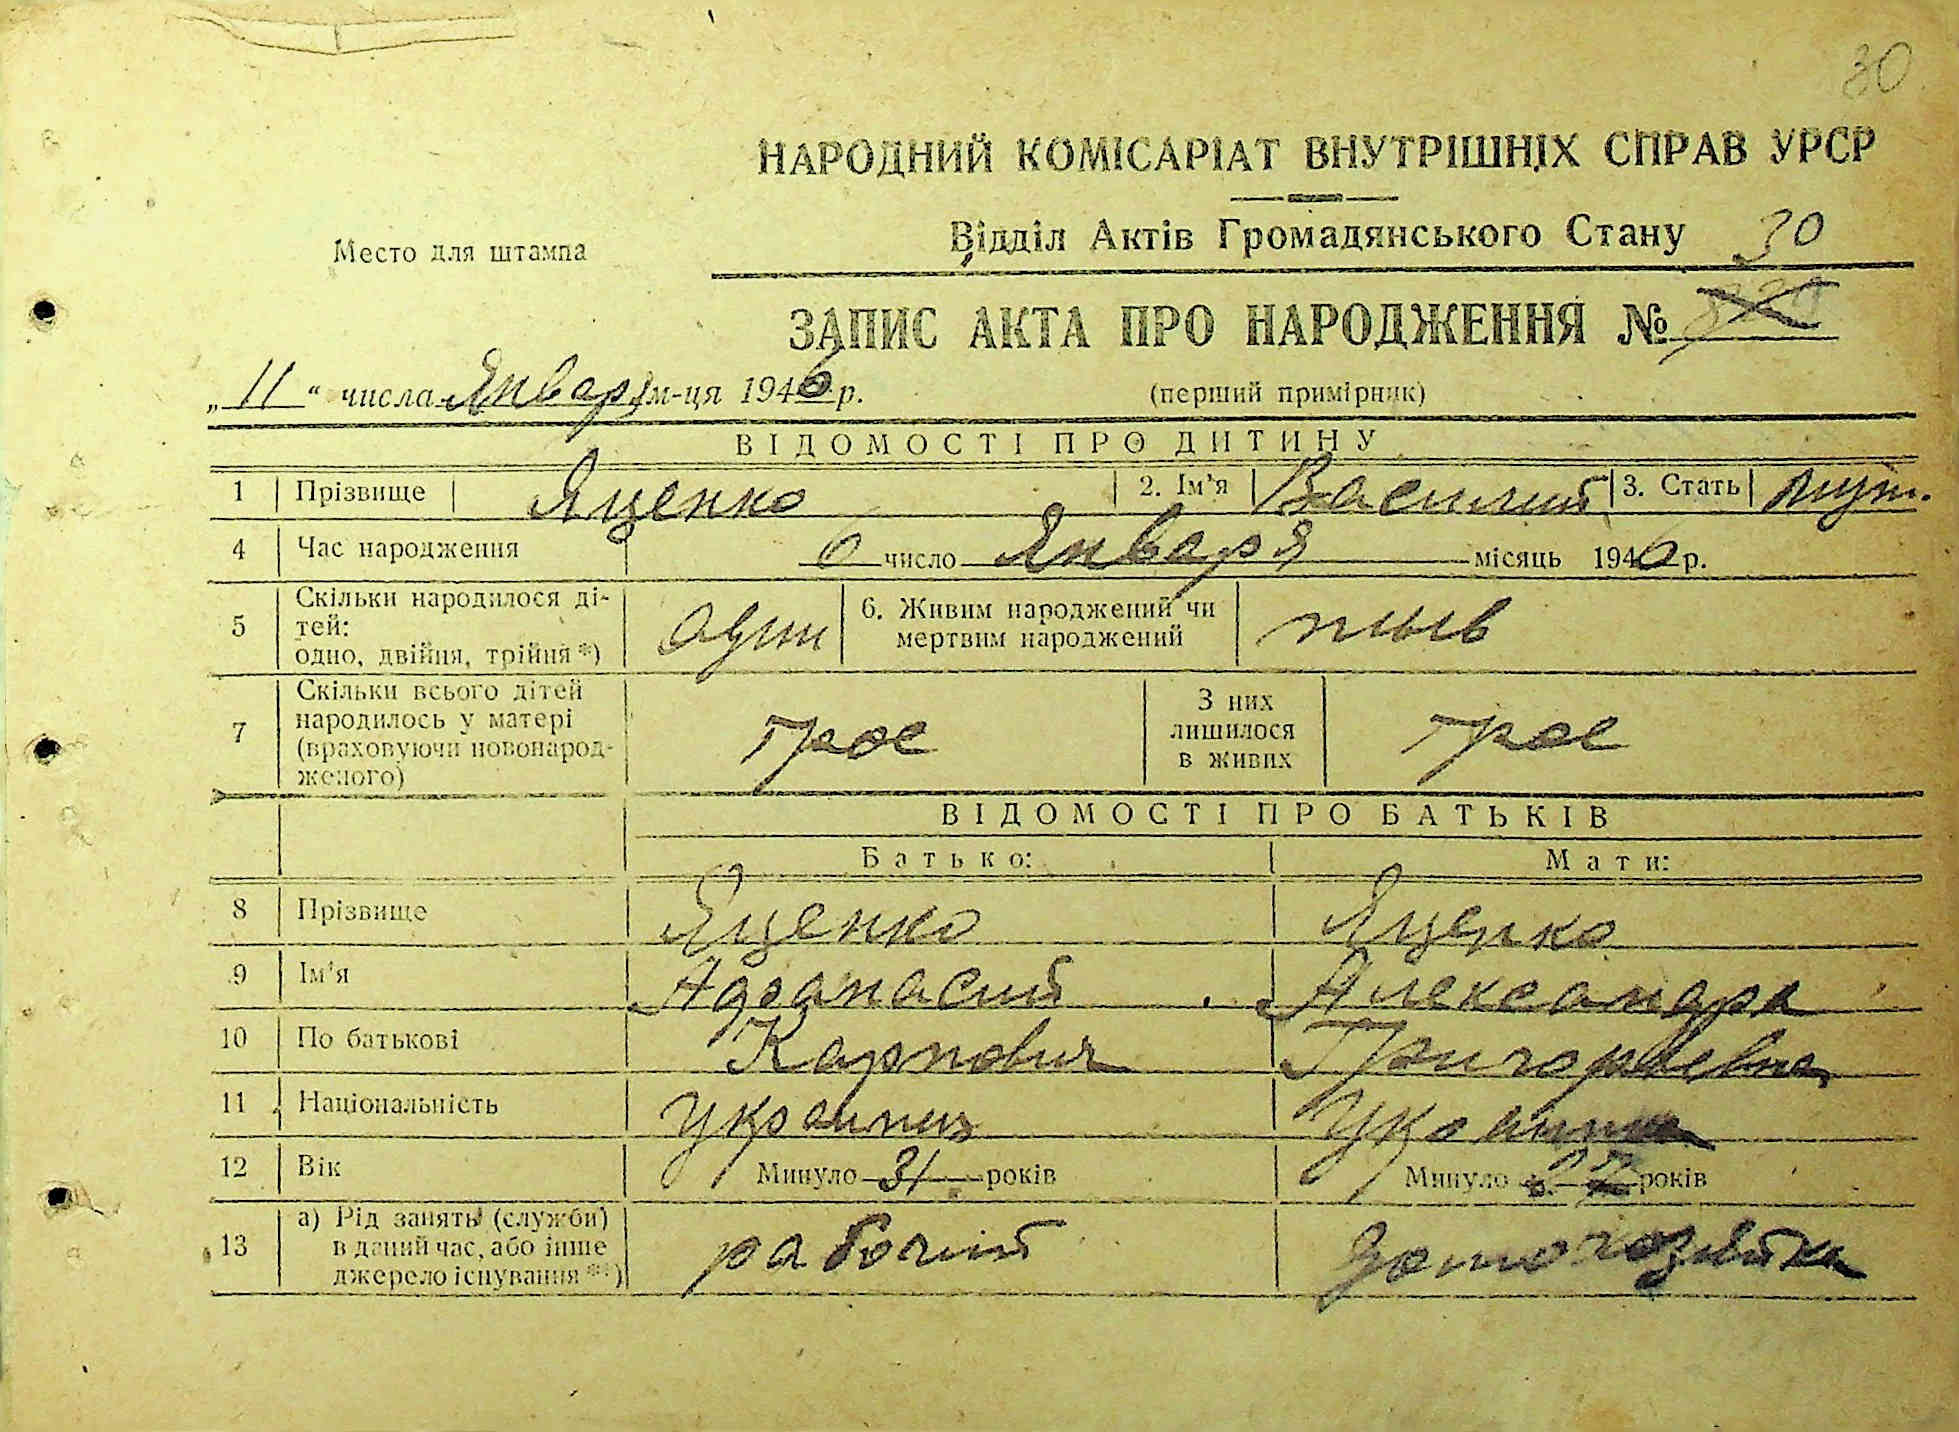 30
НАРОДНИЙ КОМІСАРІАТ ВНУТРІШНІХ СПРАВ УРСР
Место для штампа
Відділ Актів Громадянського Стану 30
ЗАПИС АКТА ПРО НАРОДЖЕННЯ №
„11“ числа Январ м-ця 1946 р. (перший примірник)
ВІДОМОСТІ ПРО ДИТИНУ
1 Прізвище Яценко 2. Ім'я Василий 3. Стать муж.
4 Час народження 6 число Января місяць 1946 р.
5 Скільки народилося ді-
тей:
одно, двійня, трійня *) один 6. Живим народжений чи
мертвим народжений жыв
7 Скільки всього дітей
народилось у матері
(враховуючи новонарод-
женого) трое З них
лишилося
в живих трое
ВІДОМОСТІ ПРО БАТЬКІВ
Батько: Мати:
8 Прізвище Яценко Яценко
9 Ім'я Афанасий Александра
10 По батькові Карпович Григорьевна
11 Національність Украинец Украинка
12 Вік Минуло 31 років Минуло 27 років
13 а) Рід занять (служби)
в даний час, або інше
джерело існування **) рабочий домохозяйка